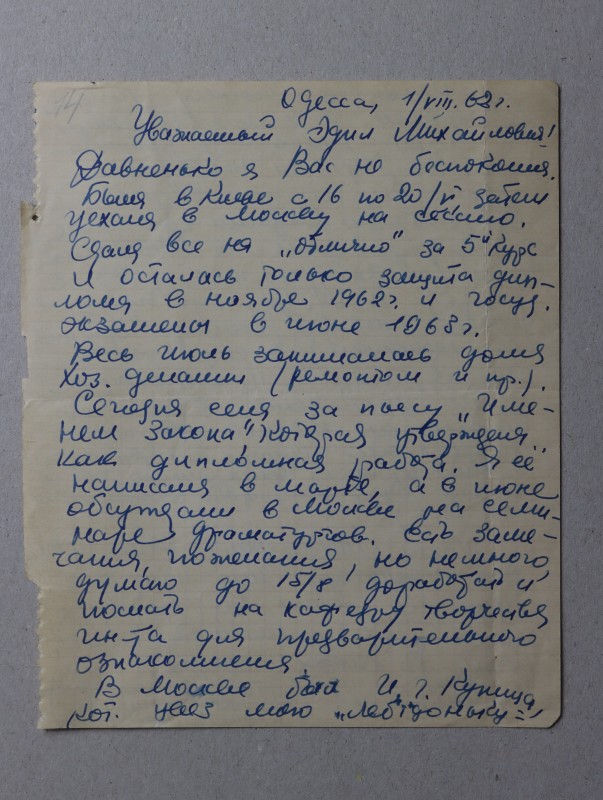 14
Одесса, 1/VIII. 62 г.
Уважаемый Эдил Михайлович!
Давненько я Вас не беспокоила.
Была в Киеве с 16 по 20/VI затем
уехала в Москву на сессию.
Сдала все на „отлично" за 5й курс
и осталась только защита дип-
лома в ноябре 1962 г. и госуд.
экзамены в июне 1963 г.
Весь июль занималась дома
хоз. делами (ремонтом и пр.).
Сегодня села за пьесу „Име-
нем Закона", которая утверждена
как дипломная работа. Я её
написала в марте, а в июне
обсуждали в Москве на семи-
наре драматургов. Есть заме-
чания, пожелания, но немного
думаю до 15/8 доработать и
послать на кафедру творчества
ин-та для предварительного
ознакомления
В Москве был И. г. Купица
кот. увёз мою „Лебідоньку"